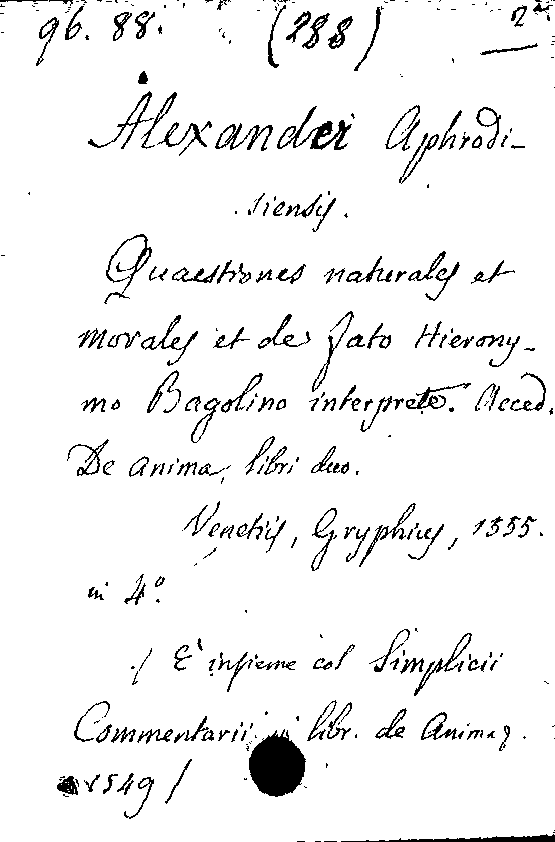 96. 88. (288) 2ª
Alexandri Aphrodi-
siensis.
Quaestiones naturales et
morales et de fato Hierony-
mo Bagolino interprete. Acced.
De anima, libri duo.
Venetiis, Gryphius, 1555.
in 4º.
/ E' insieme col Simplicii
Commentarii in libr. de Anima
1549 /